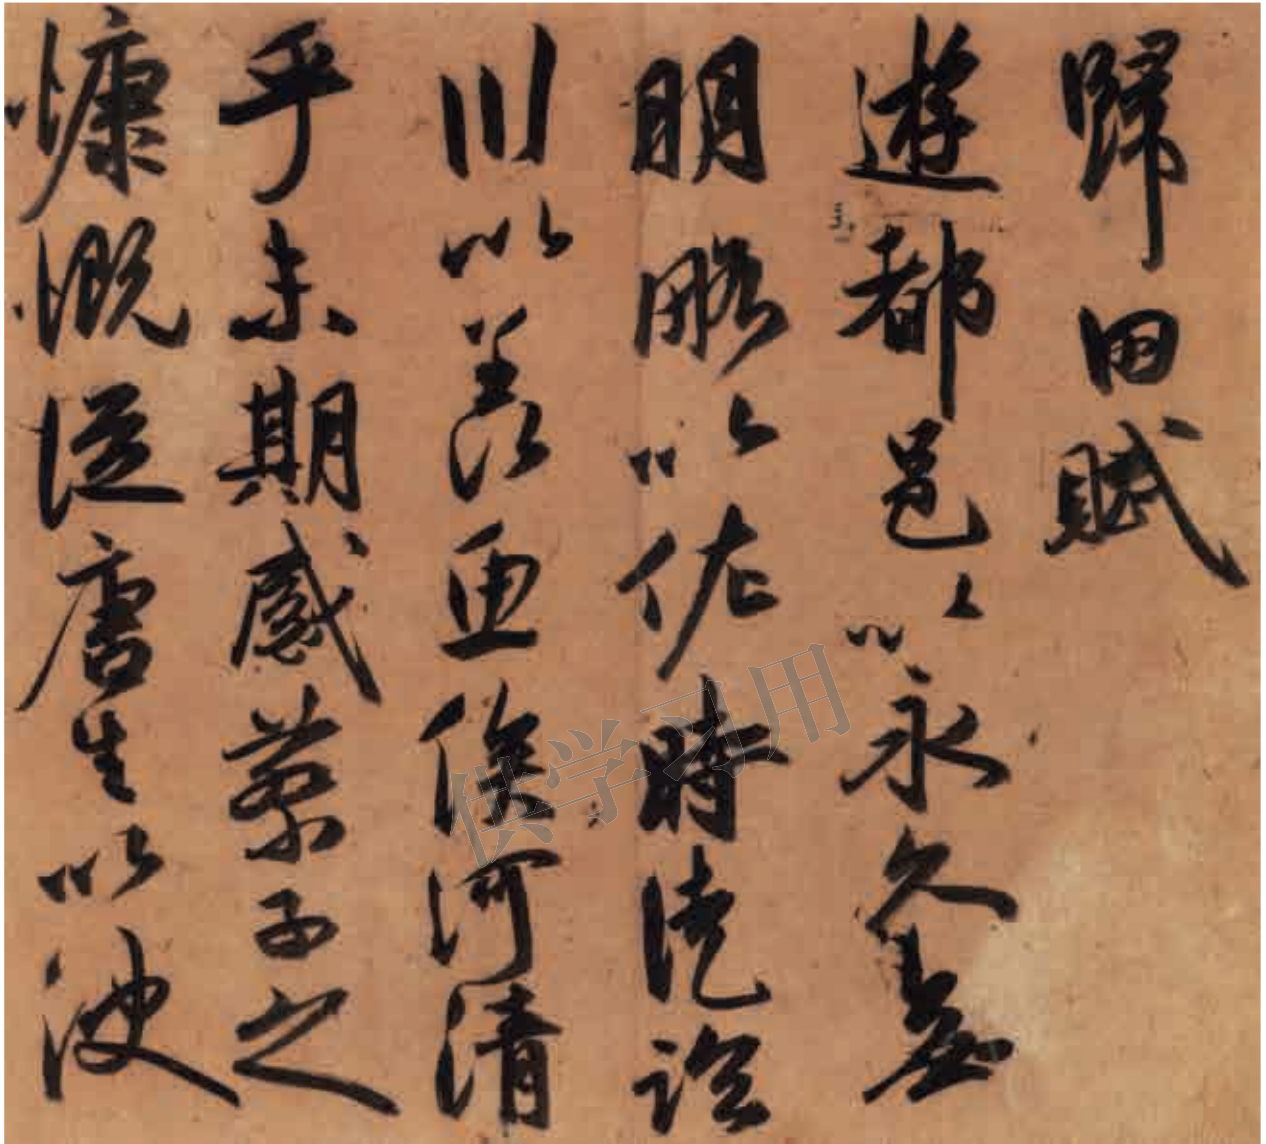 歸田賦
遊都邑以永久無
明略以佐時徒臨
川以羨魚俟河清
乎未期感蔡子之
慷慨從唐生以決
供学习用